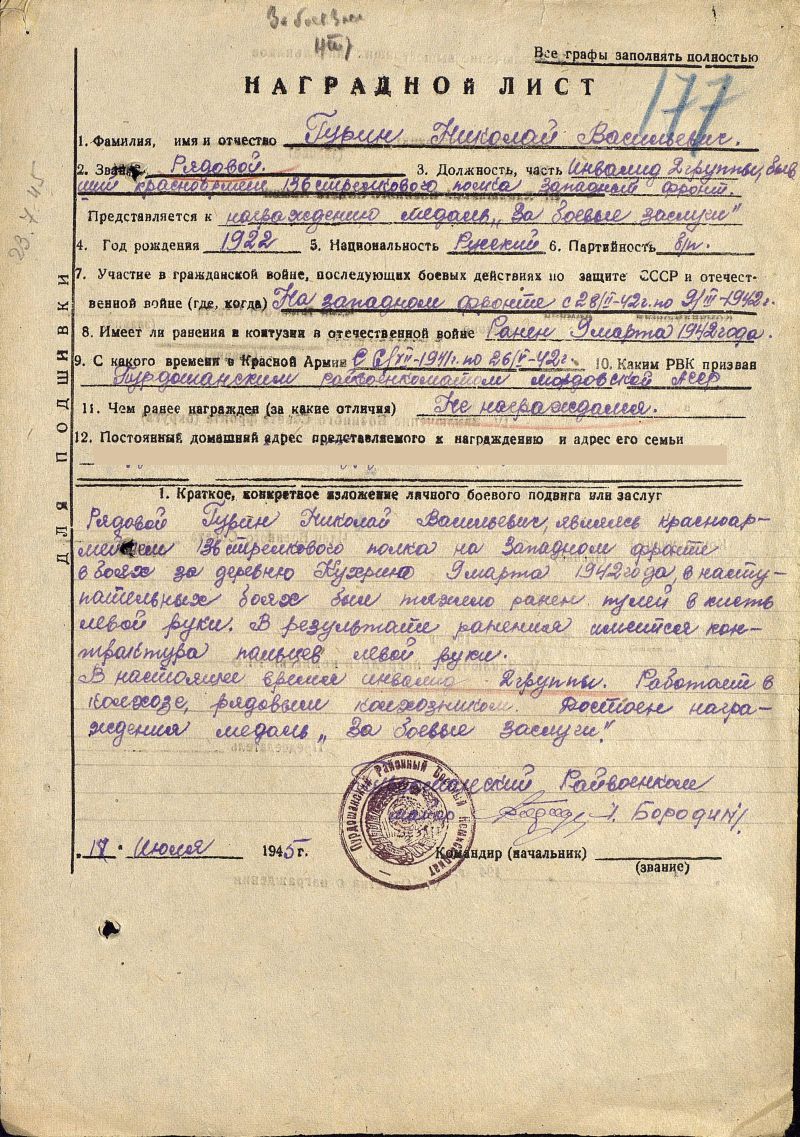 За боевые
177
Все графы заполнять полностью
НАГРАДНОЙ ЛИСТ
23.7.45
ДЛЯ ПОДШИВКИ
1. Фамилия, имя и отчество Гурин Николай Васильевич.
2. Звание Рядовой. 3. Должность, часть Инвалид 2 группы, быв
ший красноармеец 136 стрелкового полка Западный фронт.
Представляется к награждению медаль „За боевые заслуги"
4. Год рождения 1922 5. Национальность Русский 6. Партийность б/п.
7. Участие в гражданской войне, последующих боевых действиях по защите СССР и отечест-
венной войне (где, когда) На западном фронте с 28/II-42г. по 9/III-1942г.
8. Имеет ли ранения и контузии в отечественной войне Ранен 9 марта 1942 года.
9. С какого времени в Красной Армии С /XII-1941г. по 26/V-42г. 10. Каким РВК призван
Пурдошанским райвоенкоматом мордовской АССР
11. Чем ранее награжден (за какие отличия) Не награждался.
12. Постоянный домашний адрес представляемого к награждению и адрес его семьи
1. Краткое, конкретное изложение личного боевого подвига или заслуг
Рядовой Гурин Николай Васильевич, являясь красноар-
мейцем 136 стрелкового полка на Западном фронте
в боях за деревню Кухрино 9 марта 1942 года, в насту-
пательных боях был тяжело ранен пулей в кисть
левой руки. В результате ранения имеется кон-
трактура пальцев левой руки.
В настоящее время инвалид 2 группы. Работает в
колхозе, рядовым колхозником. Достоен награ-
ждения медаль „За боевые заслуги".
Пурдошанский Райвоенком
майор Бородин
Пурдошанский Районный Военный Комиссариат
17. Июля 1945 г. Командир (начальник)
(звание)